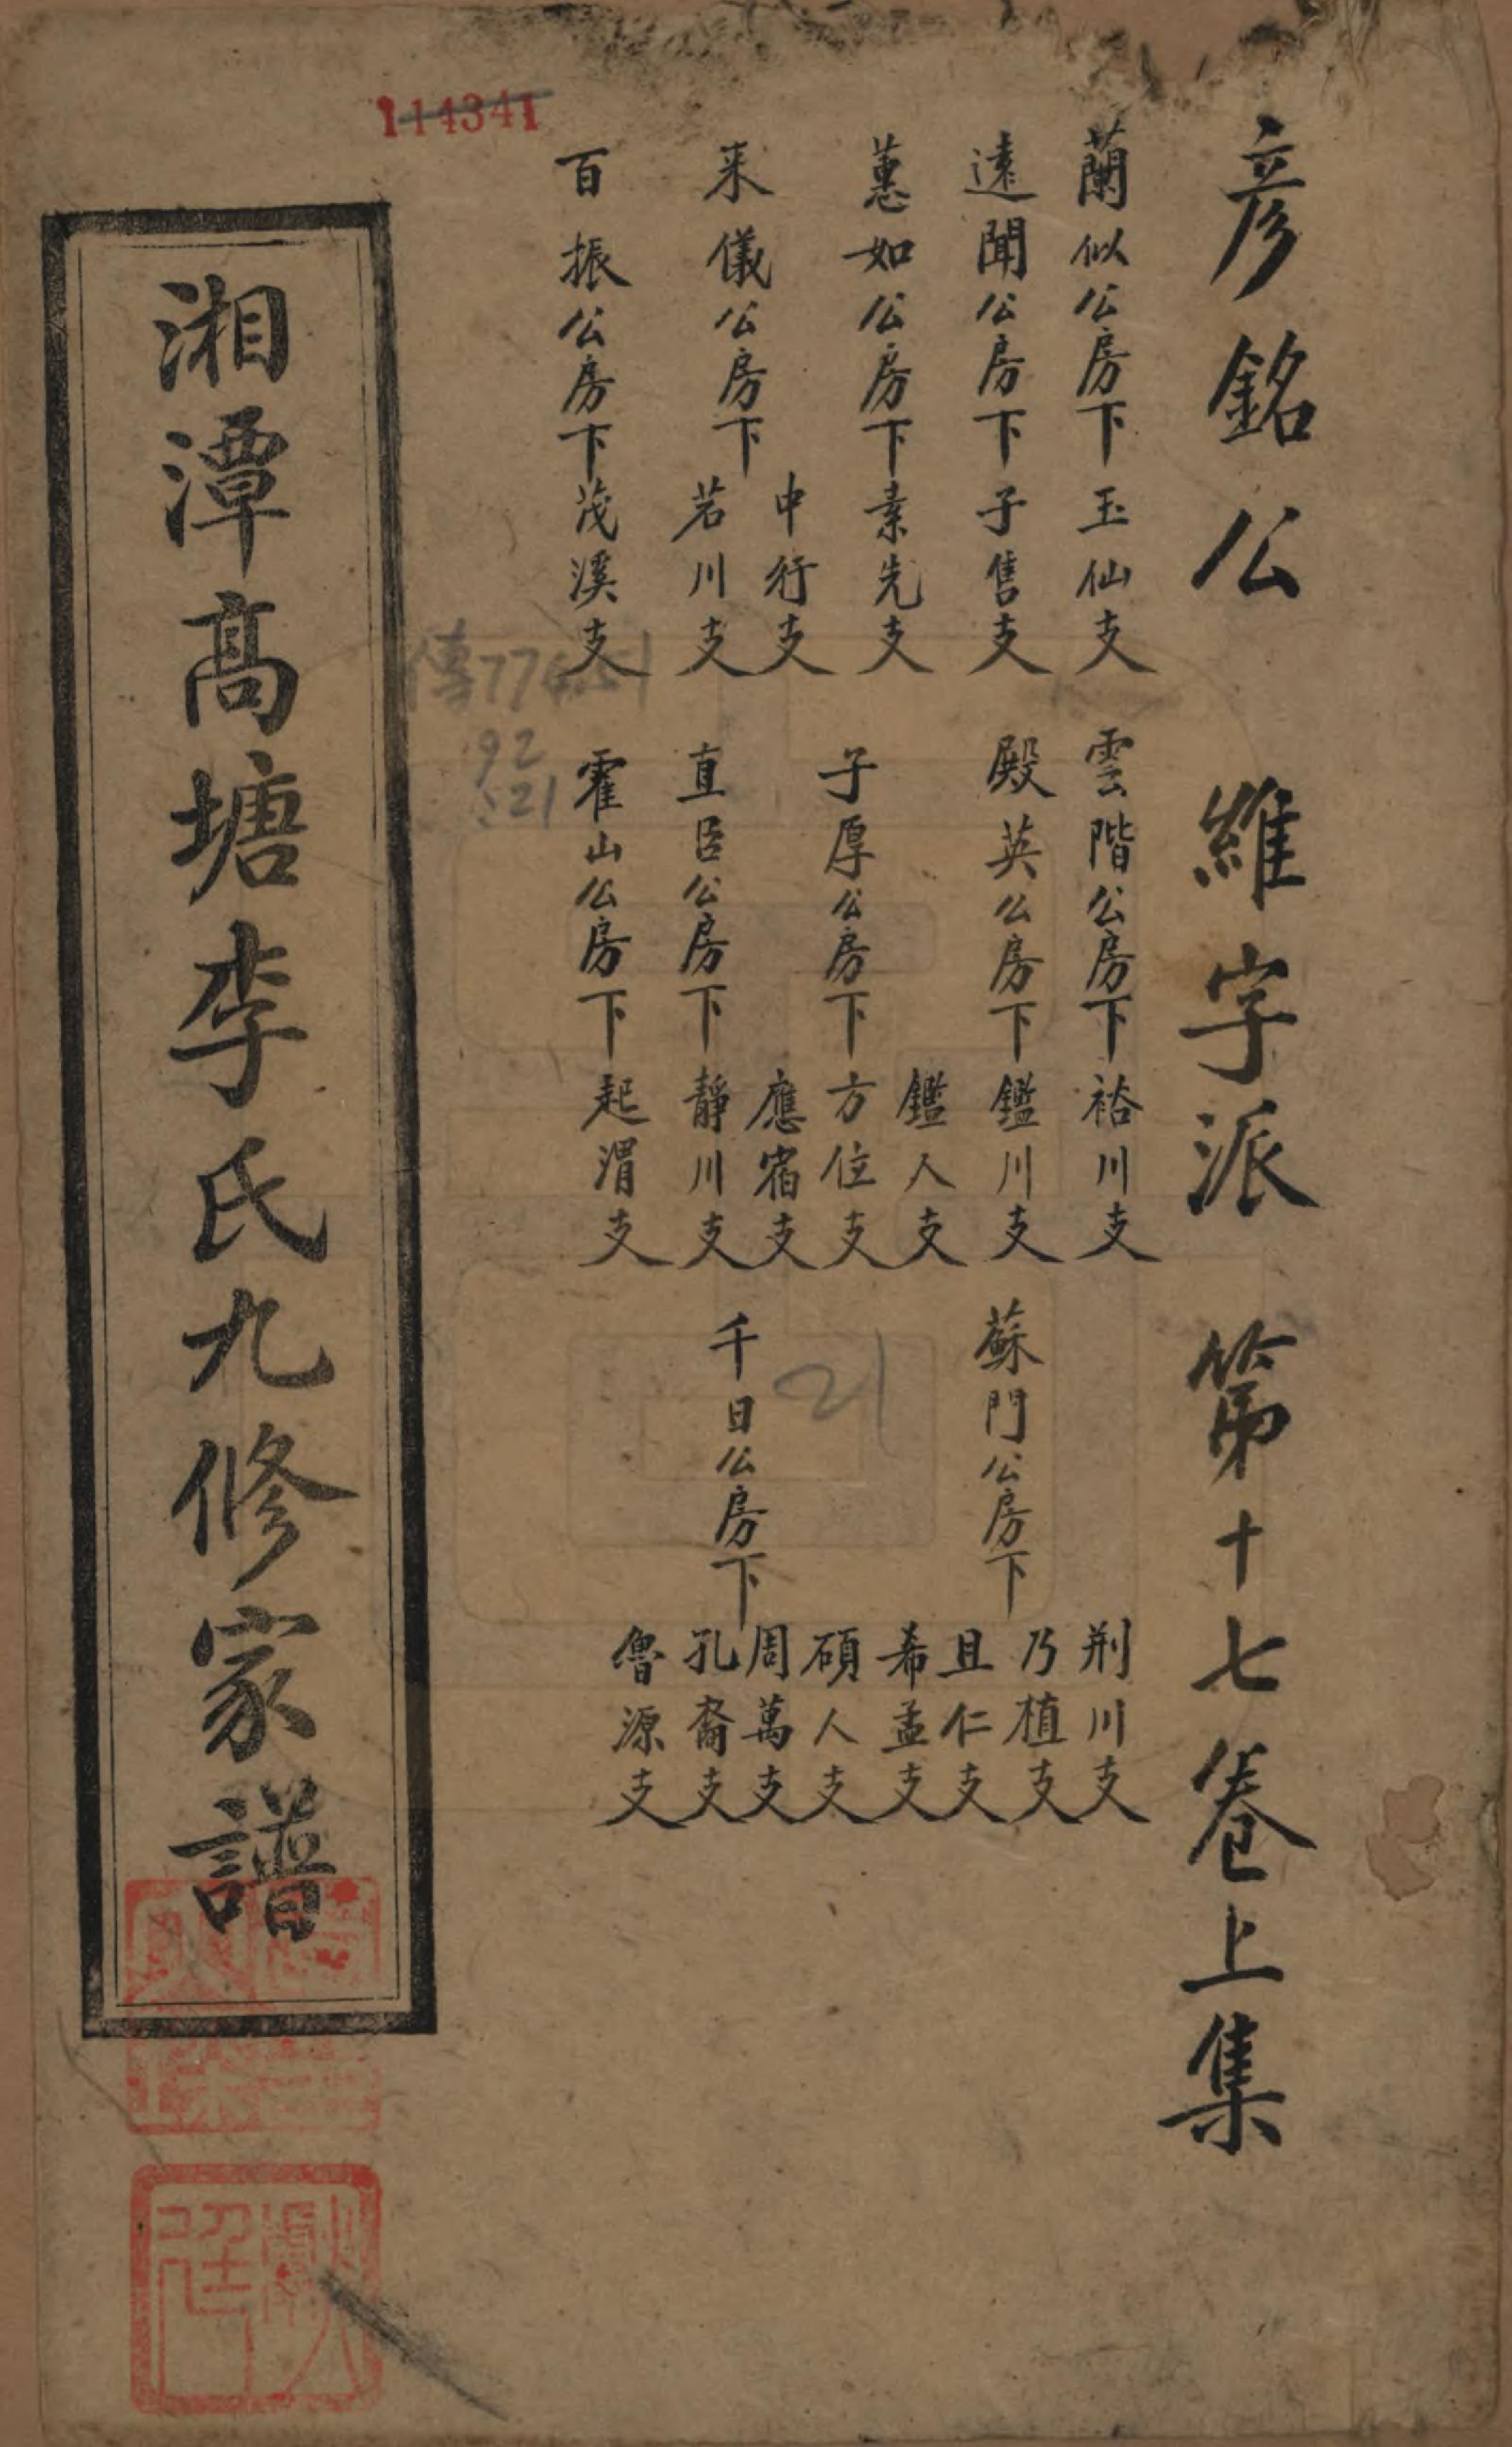 彥銘公　維字派　第十七卷上集
蘭似公房下玉仙支
遠聞公房下子售支
蕙如公房下素先支
來儀公房下中行支
若川支
百振公房下茂溪支
雲階公房下裕川支
殿英公房下鑑川支
鑑人支
子厚公房下方位支
應宿支
直臣公房下靜川支
霍山公房下起渭支
蘇門公房下
荆川支
乃植支
且仁支
希孟支
碩人支
千日公房下
周萬支
孔裔支
魯源支
21
114341
92
521
湘潭髙塘李氏九修家譜